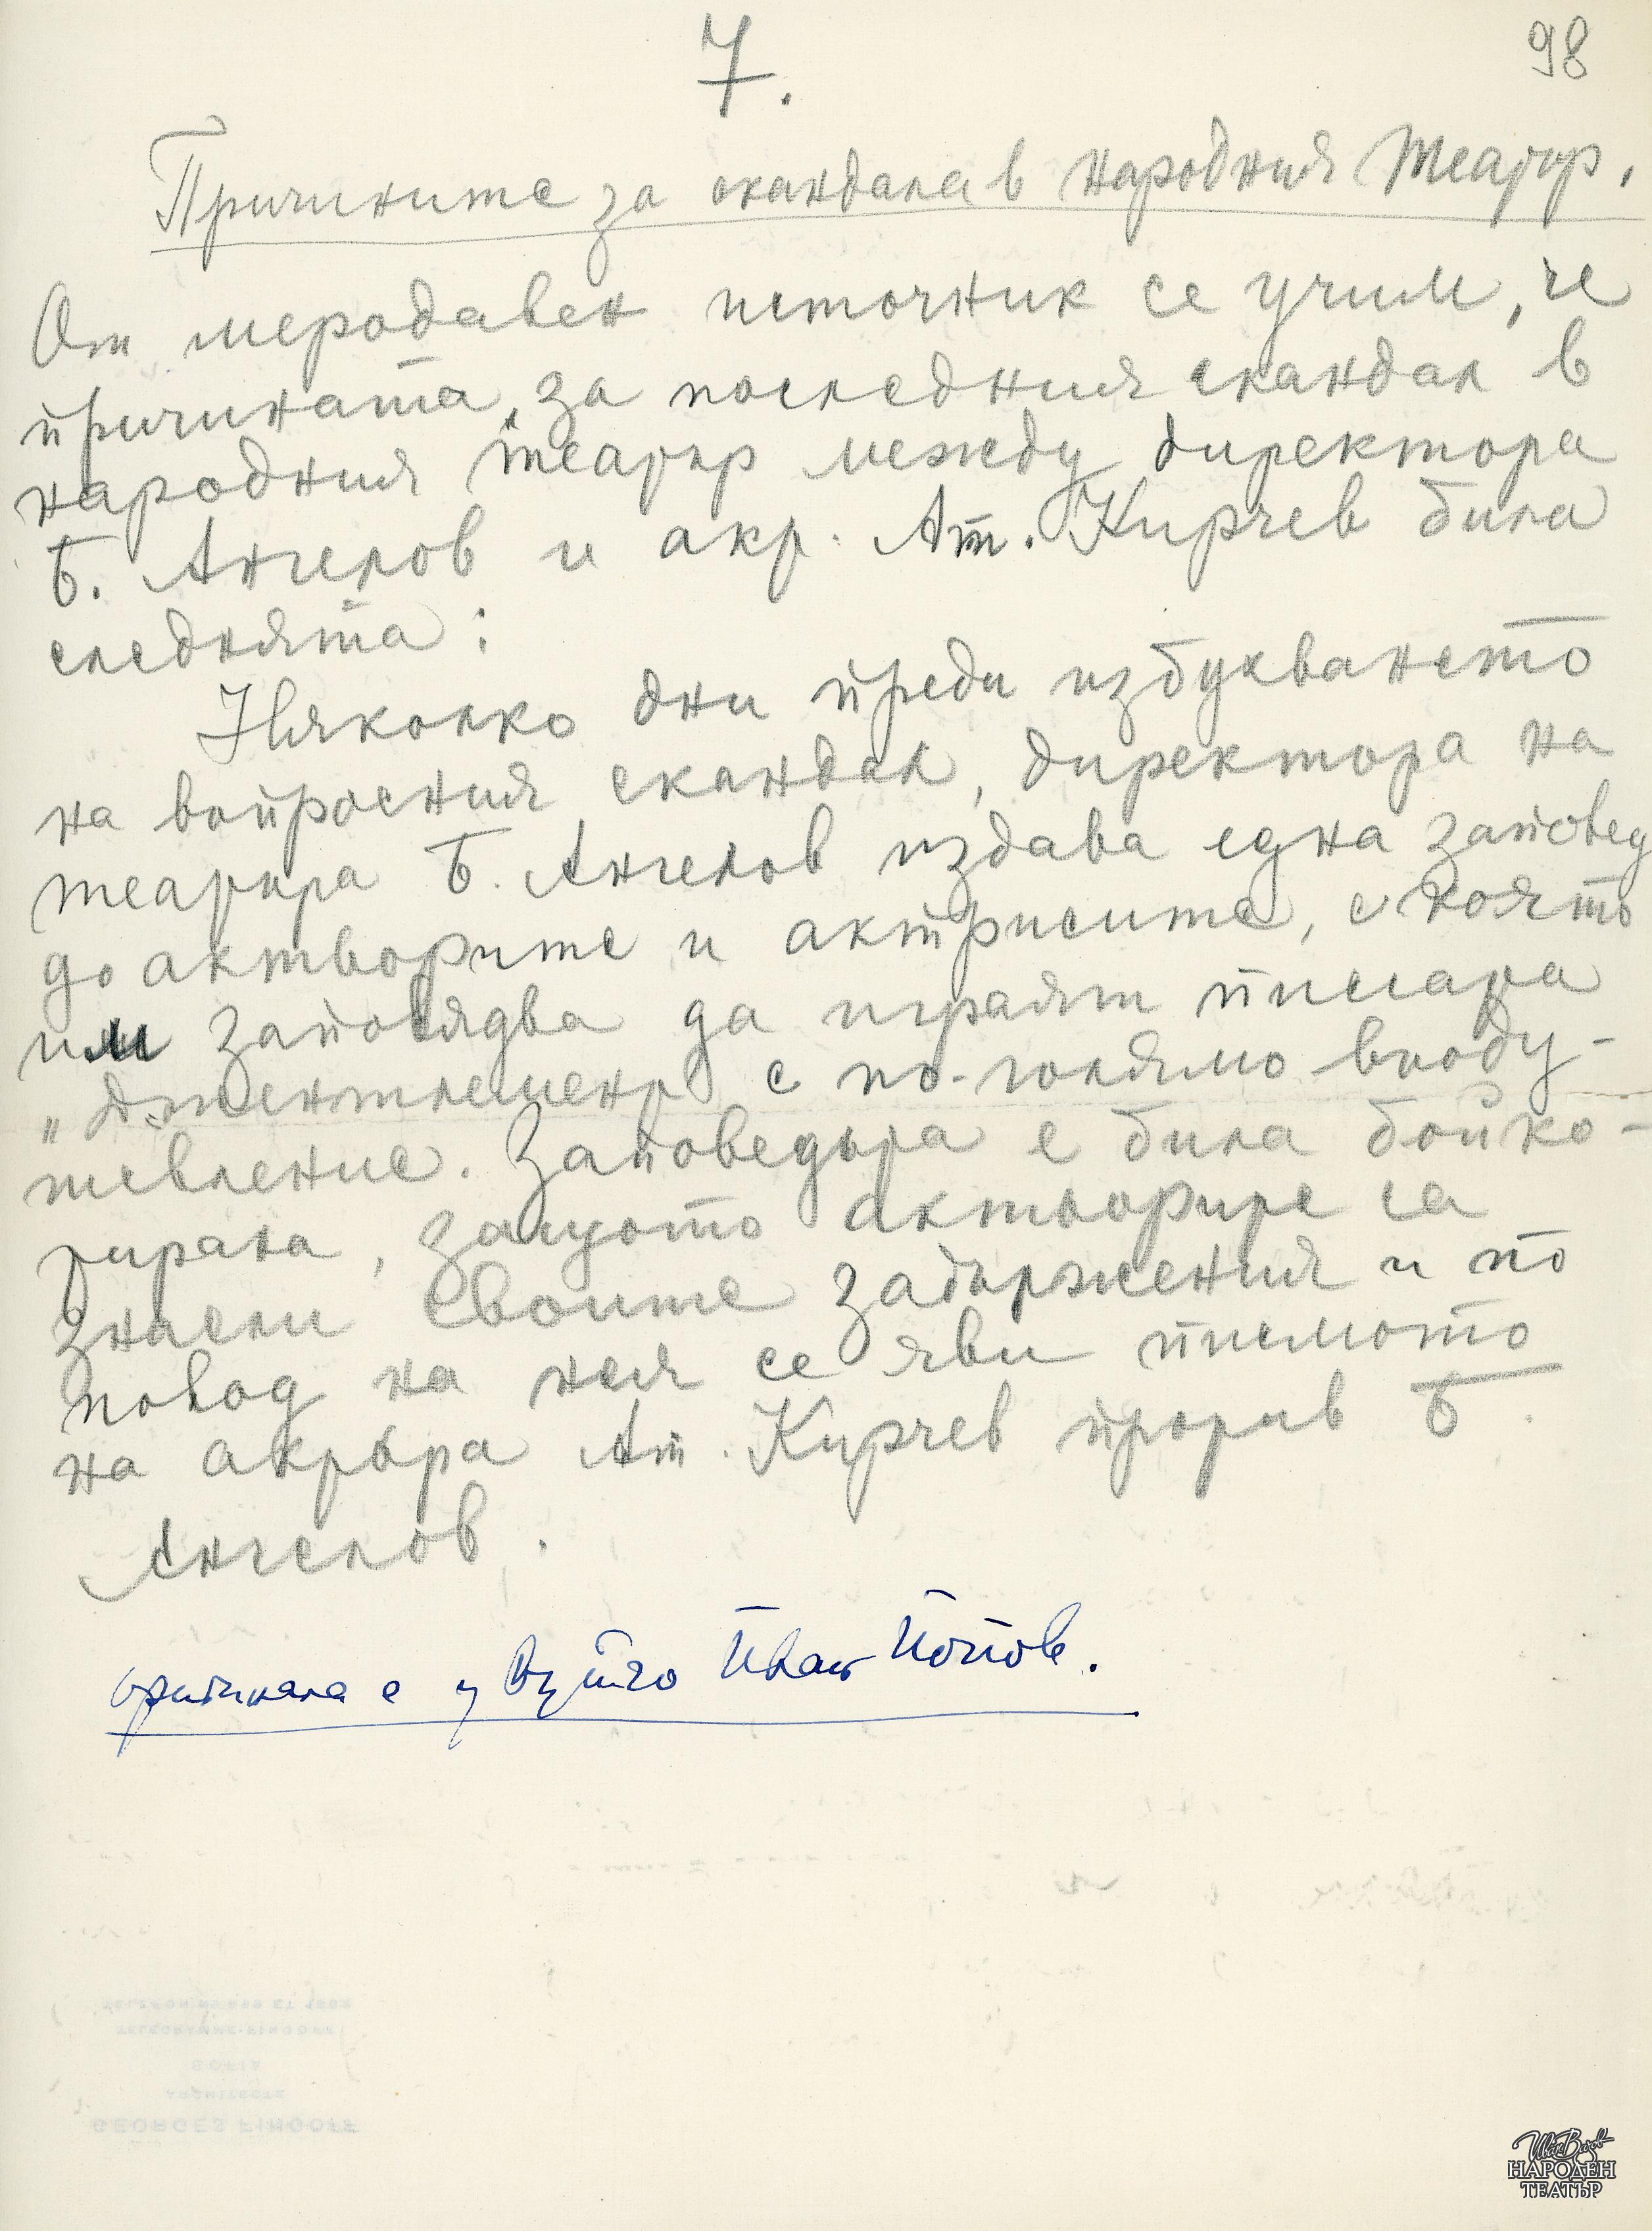 7.
98
Причините за скандала в народния театър.
От меродавен източник се учим, че
причината за последния скандал в
народния театър между директора
Б. Ангелов и акт. Ат. Кирчев била
следнята:
Няколко дни преди избухването
на въпросния скандал, директора на
театъра Б. Ангелов издава една заповед
до актьорите и актрисите, с която
им заповядва да играят писата
„Джентлемент с по-голямо вооду-
шевление. Заповедьта е била бойко-
тирана, защото актьорите са
знаели своите задържения и по
повод на нея се яви писмото
на актьра Ат. Кирчев против Б.
Ангелов.
оригинала е у Вуйчо Иван Попов.
GEORGES FINGOFF
ARCHITECTE
SOFIA
НАРОДЕН
ТЕАТЪР